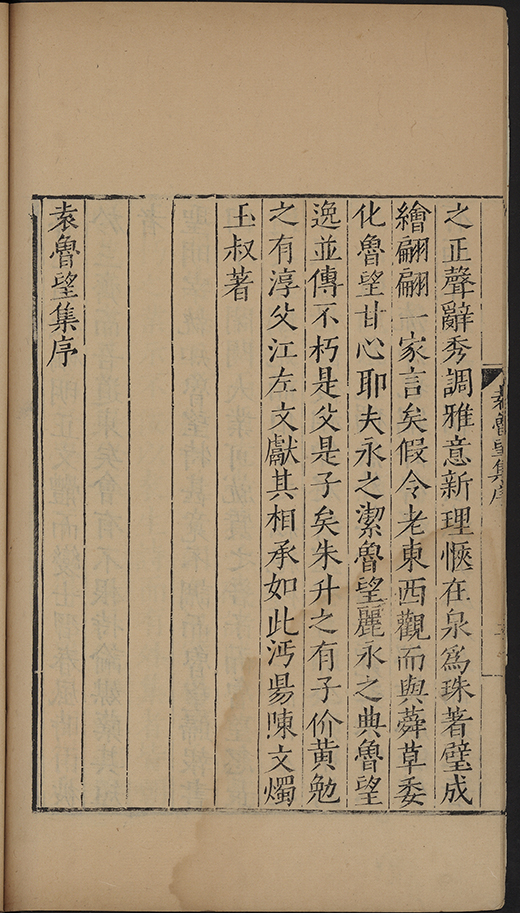 之正聲辭秀調雅意新理愜在泉爲珠著壁成
繪翩翩一家言矣假令老東西觀而與蕣草委
化魯望甘心耶夫永之潔魯望麗永之典魯望
逸並傳不朽是父是子矣朱升之有子价黃勉
之有淳父江左文獻其相承如此沔昜陳文燭
玉叔著
袁魯望集序
袁魯望集序